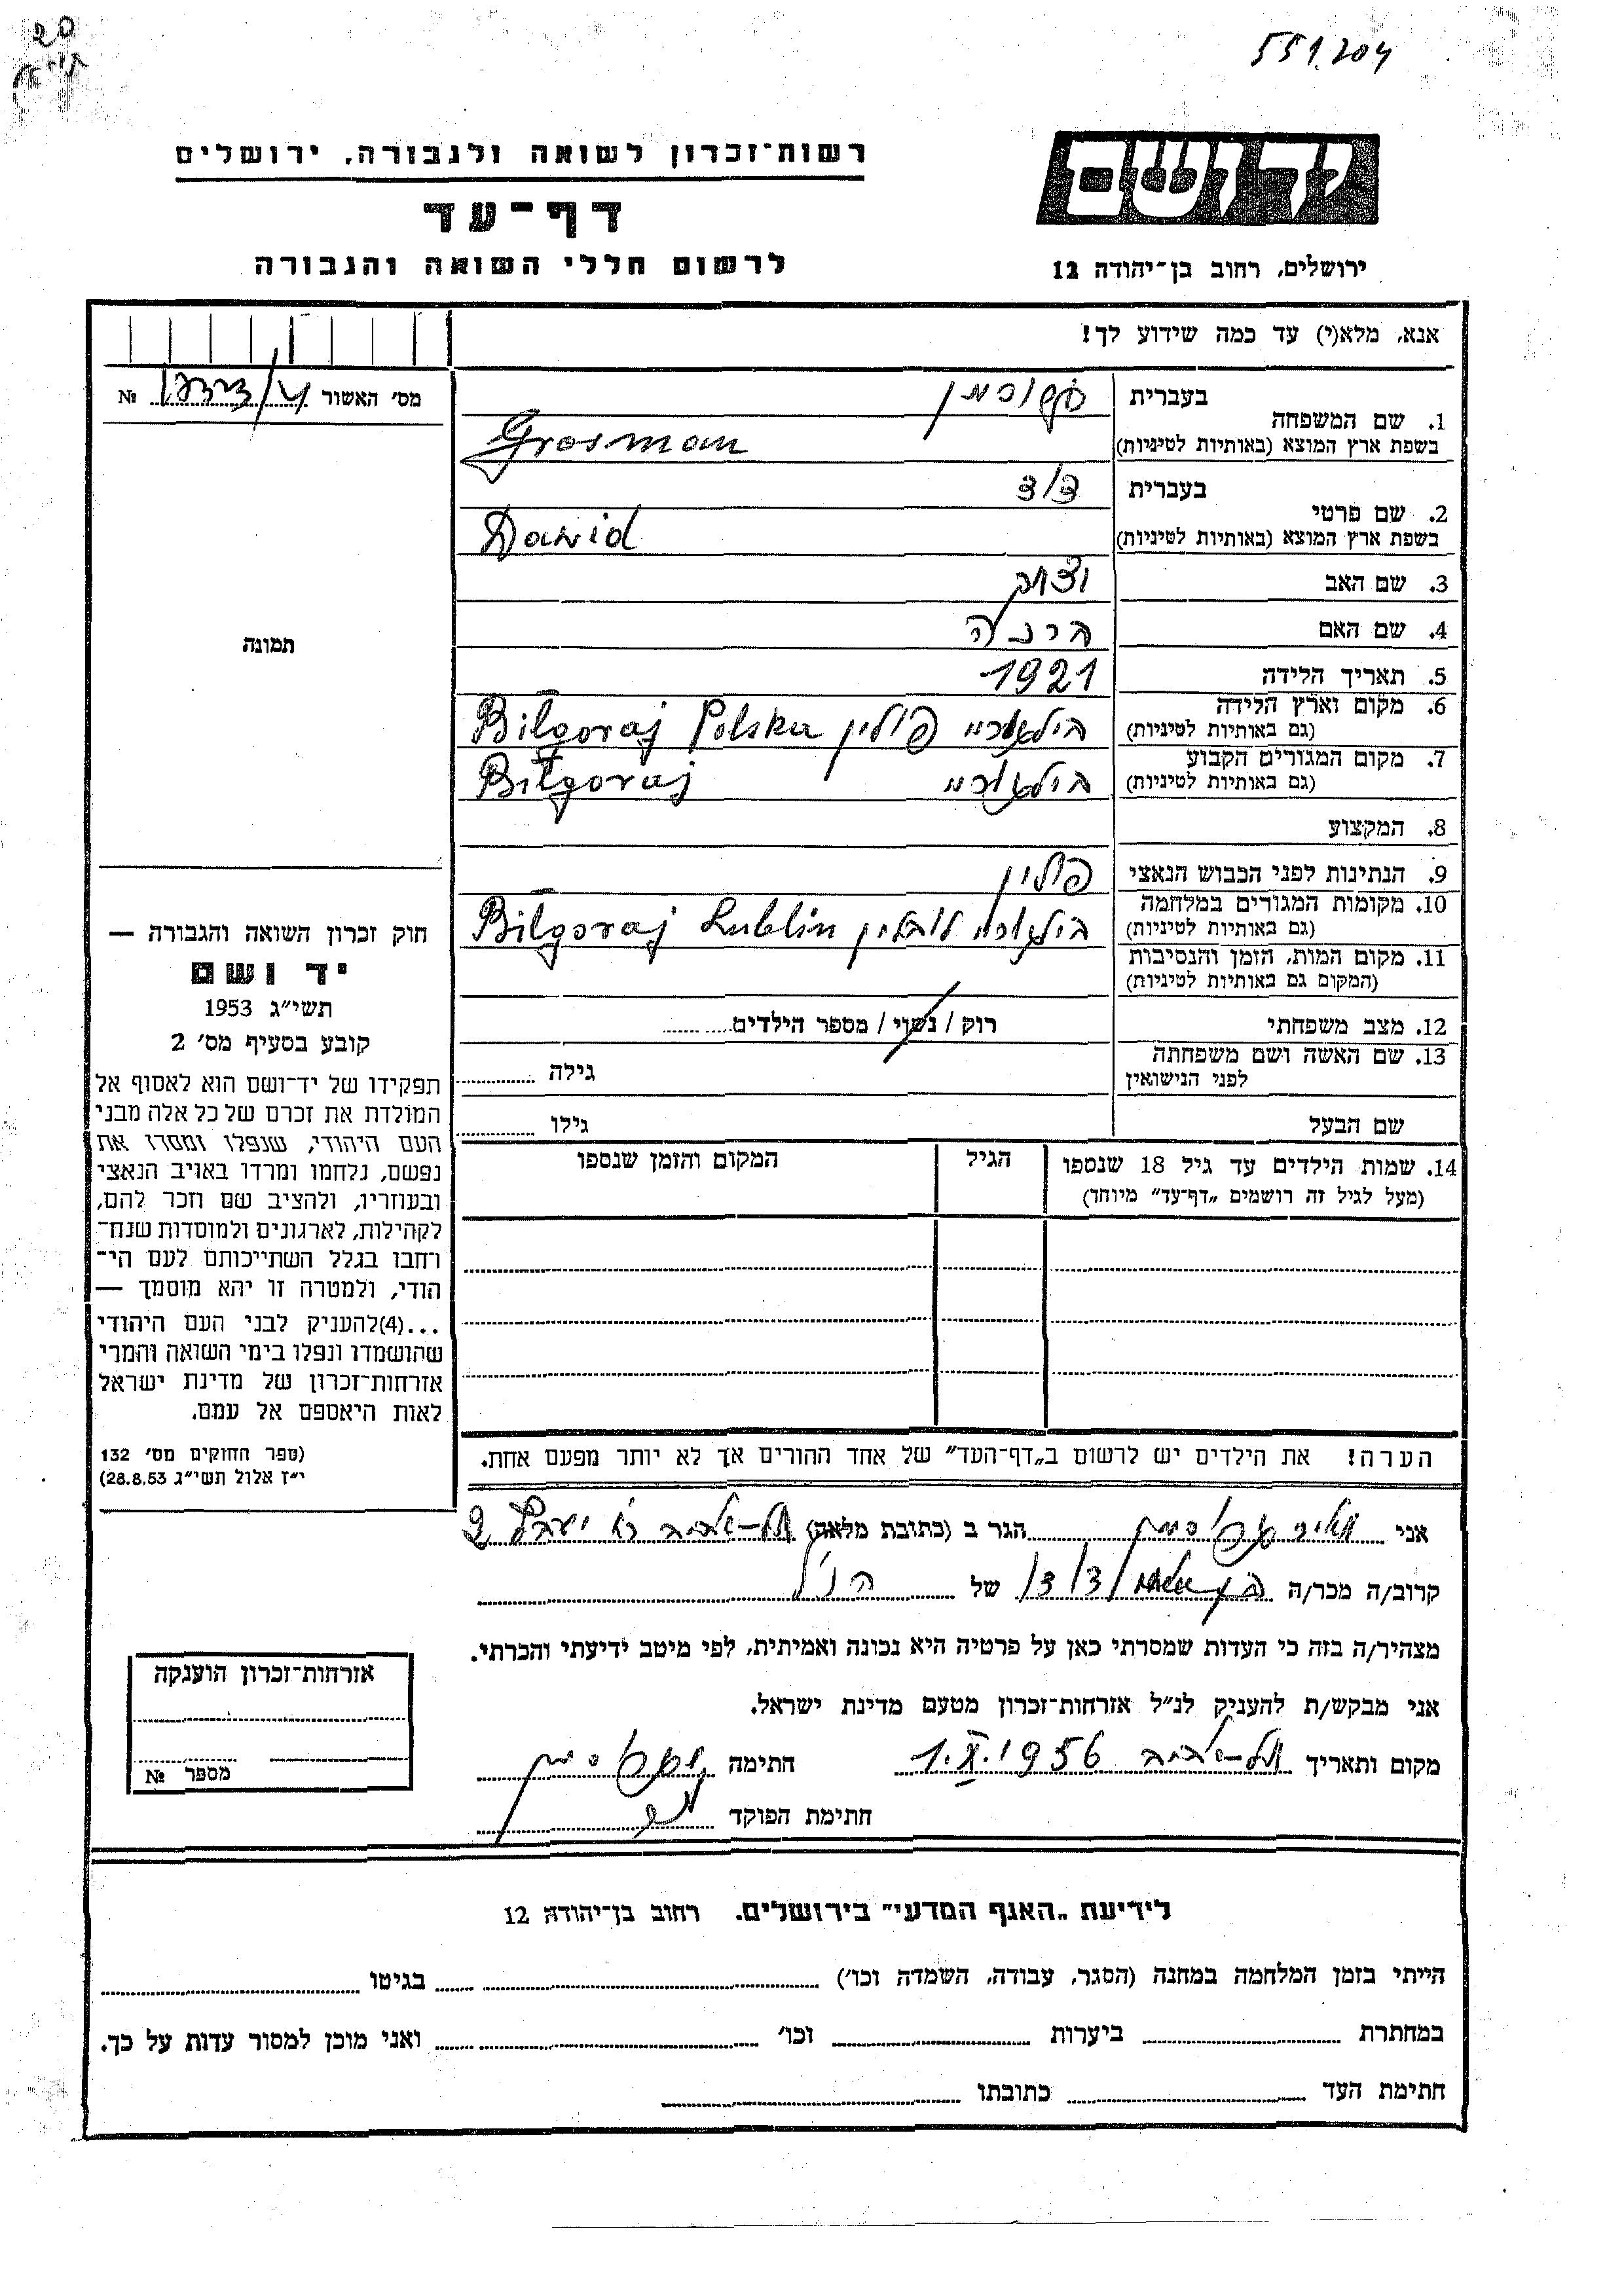 551.204
רשות־זכרון לשואה ולגבורה, ירושלים
יד ושם
דף־עד
לרשום חללי השואה והגבורה
ירושלים, רחוב בן־יהודה 12
אנא, מלא(י) עד כמה שידוע לך!
מס׳ האשור № 
בעברית
1. שם המשפחה
בשפת ארץ המוצא (באותיות לטיניות) Grosman
בעברית דוד
2. שם פרטי
בשפת ארץ המוצא (באותיות לטיניות) Dawid
3. שם האב
4. שם האם
5. תאריך הלידה 1921
6. מקום וארץ הלידה
(גם באותיות לטיניות) בילגוריי פולין Bilgoraj Polska
7. מקום המגורים הקבוע
(גם באותיות לטיניות) בילגוריי Bilgoraj
8. המקצוע
9. הנתינות לפני הכבוש הנאצי פולין
10. מקומות המגורים במלחמה
(גם באותיות לטיניות) בילגוריי לובלין Bilgoraj Lublin
11. מקום המות, הזמן והנסיבות
(המקום גם באותיות לטיניות)
12. מצב משפחתי רוק / נשוי / מספר הילדים
13. שם האשה ושם משפחתה
לפני הנישואין גילה
שם הבעל גילו
14. שמות הילדים עד גיל 18 שנספו הגיל המקום והזמן שנספו
(מעל לגיל זה רושמים „דף־עד” מיוחד)
הערה! את הילדים יש לרשום ב„דף־העד” של אחד ההורים אך לא יותר מפעם אחת.
תמונה
חוק זכרון השואה והגבורה —
יד ושם
תשי״ג 1953
קובע בסעיף מס׳ 2
תפקידו של יד־ושם הוא לאסוף אל
המולדת את זכרם של כל אלה מבני
העם היהודי, שנפלו ומסרו את
נפשם, נלחמו ומרדו באויב הנאצי
ובעוזריו, ולהציב שם וזכר להם,
לקהילות, לארגונים ולמוסדות שנח־
רחבו בגלל השתייכותם לעם הי־
הודי, ולמטרה זו יהא מוסמך —
...(4)להעניק לבני העם היהודי
שהושמדו ונפלו בימי השואה והמרי
אזרחות־זכרון של מדינת ישראל
לאות היאספם אל עמם.
(ספר החוקים מס׳ 132
י״ז אלול תשי״ג 28.8.53)
אני הגר ב (כתובת מלאה) תל-אביב
קרוב/ה מכר/ה בן דוד של הנ״ל
מצהיר/ה בזה כי העדות שמסרתי כאן על פרטיה היא נכונה ואמיתית, לפי מיטב ידיעתי והכרתי.
אני מבקש/ת להעניק לנ״ל אזרחות־זכרון מטעם מדינת ישראל.
מקום ותאריך תל-אביב 1.X.1956 חתימה
חתימת הפוקד
אזרחות־זכרון הוענקה
מספר №
לידיעת „האגף המדעי” בירושלים. רחוב בן־יהודה 12
הייתי בזמן המלחמה במחנה (הסגר, עבודה, השמדה וכו׳) בגיטו
במחתרת ביערות וכו׳ ואני מוכן למסור עדות על כך.
חתימת העד כתובתו